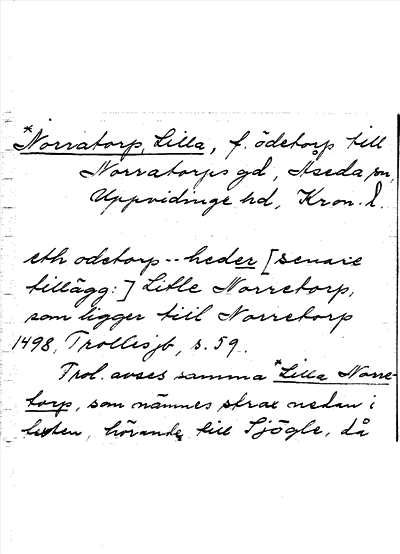 *Norratorp, Lilla, f. ödetorp till
Norratorps gd, Åseda sn,
Uppvidinge hd, Kron. l.
eth odetorp -- heder [senare
tillägg:] Litle Norretorp,
som ligger tiil Norretorp
1498, Trolles jb, s. 59.
Trol. avses samma *Lilla Norre-
torp, som nämnes strax nedan i
texten, hörande till Sjögle, då